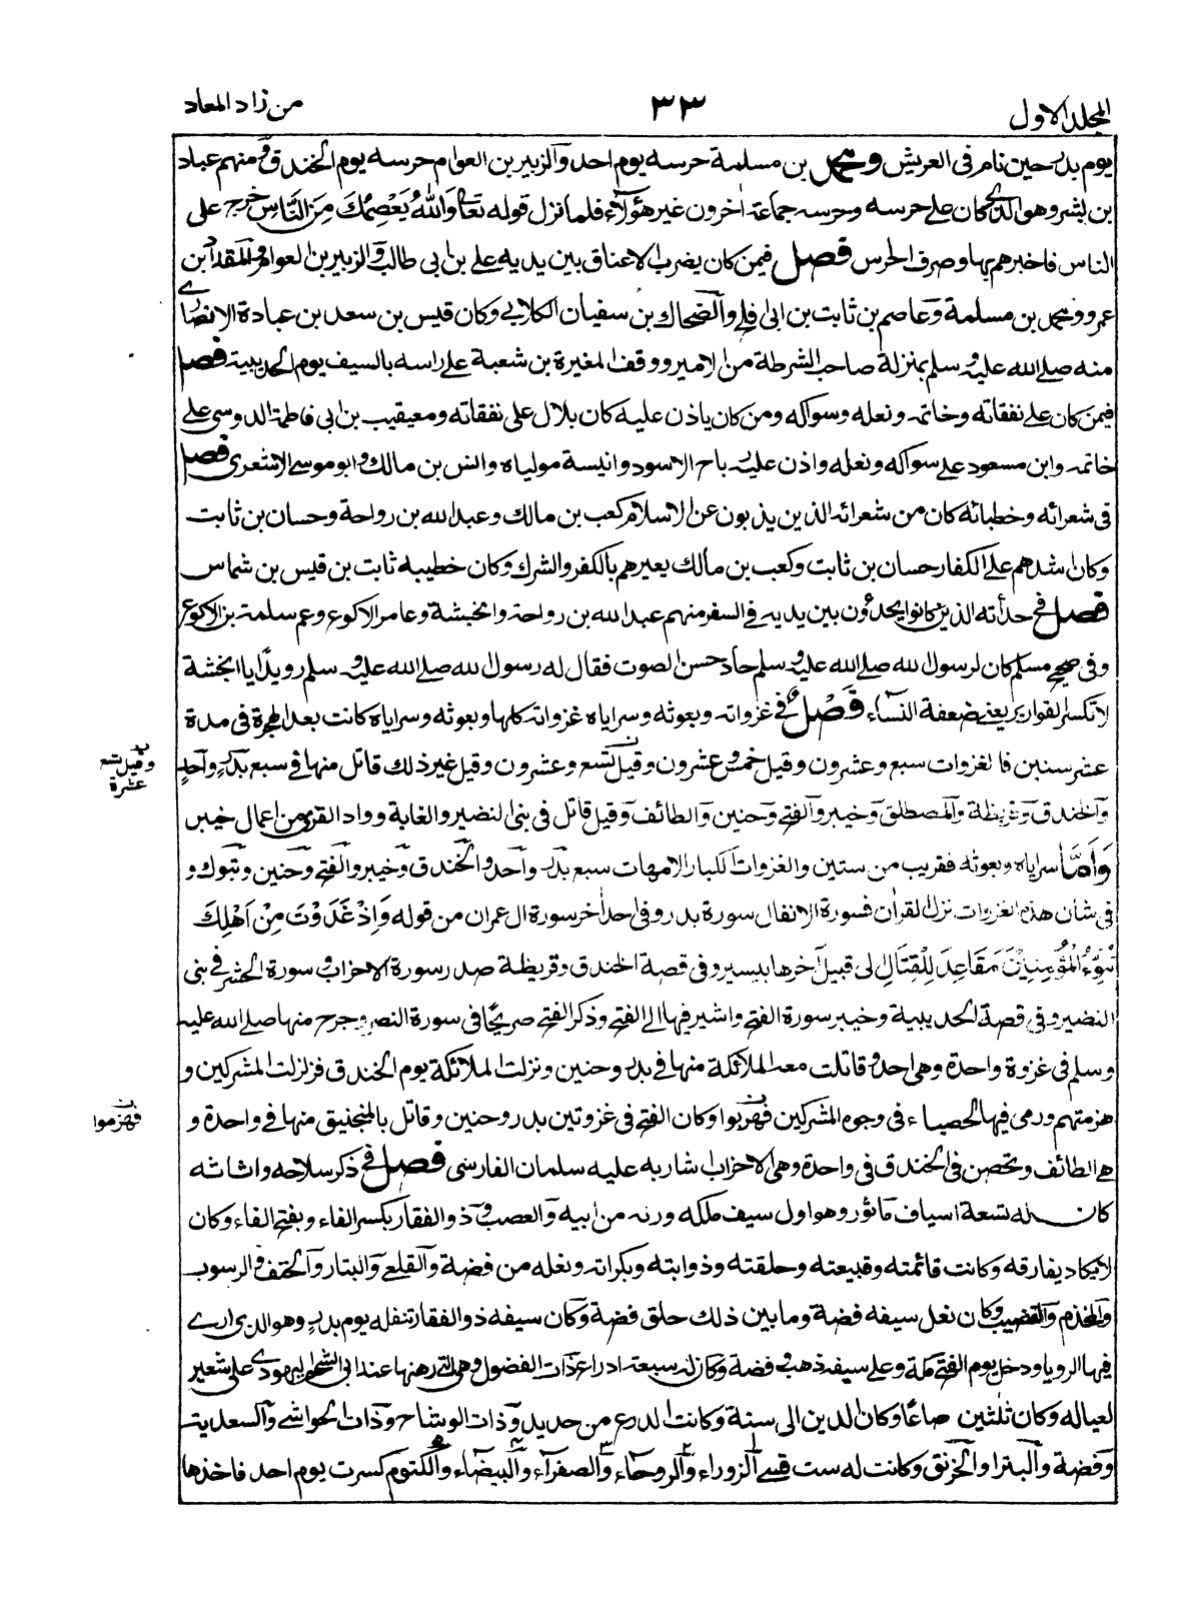 المجلد الاول ٣٣ من زاد المعاد
يوم بدر حين نام فى العريش ومحمد بن مسلمة حرسه يوم احد والزبير بن العوام حرسه يوم الخندق ومنهم عباد
بن بشر وهو الذى كان على حرسه وحرسه جماعة اخرون غير هؤلاء فلما نزل قوله تعالى وَاللّٰهُ يَعْصِمُكَ مِنَ النَّاسِ خرج على
الناس فاخبرهم بها وصرف الحرس فصل فيمن كان يضرب الاعناق بين يديه على بن ابى طالب والزبير بن العوام والمقداد بن
عمرو ومحمد بن مسلمة وعاصم بن ثابت بن ابى افلح والضحاك بن سفيان الكلابى وكان قيس بن سعد بن عبادة الانصارى
منه صلى الله عليه وسلم بمنزلة صاحب الشرطة من الامير ووقف المغيرة بن شعبة على راسه بالسيف يوم الحديبية فصل
فيمن كان على نفقاته وخاتمه ونعله وسواكه ومن كان ياذن عليه كان بلال على نفقاته ومعيقيب بن ابى فاطمة الدوسى على
خاتمه وابن مسعود على سواكه ونعله واذن عليه رباح الاسود وانيسة مولياه وانس بن مالك وابو موسى الاشعرى فصل
فى شعرائه وخطبائه كان من شعرائه الذين يذبون عن الاسلام كعب بن مالك وعبد الله بن رواحة وحسان بن ثابت
وكان اشدهم على الكفار حسان بن ثابت وكعب بن مالك يعيرهم بالكفر والشرك وكان خطيبه ثابت بن قيس بن شماس
فصل فى حدأته الذين كانوا يحدؤن بين يديه فى السفر منهم عبد الله بن رواحة وانجشة وعامر الاكوع وعم سلمة بن الاكوع
وفى صحيح مسلم كان لرسول الله صلى الله عليه وسلم حاد حسن الصوت فقال له رسول الله صلى الله عليه وسلم رويدًا يا انجشة
لا تكسر القوارير يعنى ضعفة النساء فصل فى غزواته وبعوثه وسراياه غزواته كلها وبعوثه وسراياه كانت بعد الهجرة فى مدة
عشر سنين فالغزوات سبع وعشرون وقيل خمس وعشرون وقيل تسع وعشرون وقيل غير ذلك قاتل منها فى سبع بدر واحد
وقيل تسع عشرة
والخندق وقريظة والمصطلق وخيبر والفتح وحنين والطائف وقيل قاتل فى بنى النضير والغابة وواد القرى من اعمال خيبر
وَاَمَّا سراياه وبعوثه فقريب من ستين والغزوات الكبار الامهات سبع بدر واحد والخندق وخيبر والفتح وحنين وتبوك و
فى شان هذه الغزوات نزل القران فسورة الانفال سورة بدر وفى احد اخر سورة ال عمران من قوله وَاِذْ غَدَوْتَ مِنْ اَهْلِكَ
تُبَوِّئُ الْمُؤْمِنِيْنَ مَقَاعِدَ لِلْقِتَالِ الى قبيل آخرها بيسير وفى قصة الخندق وقريظة صدر سورة الاحزاب وسورة الحشر فى بنى
النضير وفى قصة الحديبية وخيبر سورة الفتح واشير فيها الى الفتح وذكر الفتح صريحًا فى سورة النصر وجرح منها صلى الله عليه
وسلم فى غزوة واحدة وهى احد وقاتلت معه الملائكة منها فى بدر وحنين ونزلت الملائكة يوم الخندق فزلزلت المشركين و
هزمتهم ورمى فيها الحصباء فى وجوه المشركين فهربوا وكان الفتح فى غزوتين بدر وحنين وقاتل بالمنجنيق منها فى واحدة و
فهزموا
هى الطائف وتحصن فى الخندق فى واحدة وهى الاحزاب اشار به عليه سلمان الفارسى فصل فى ذكر سلاحه واثاثه
كان له تسعة اسياف ماثور وهو اول سيف ملكه ورثه من ابيه والعصب وذو الفقار بكسر الفاء وبفتح الفاء وكان
لا يكاد يفارقه وكانت قائمته وقبيعته وحلقته وذوابته وبكراته ونعله من فضة والقلعى والبتار والحتف والرسوب
والمخذم والقضيب وكان نعل سيفه فضة وما بين ذلك حلق فضة وكان سيفه ذو الفقار تنفله يوم بدر وهو الذى ارى
فيها الرويا ودخل يوم الفتح مكة وعلى سيفه ذهب وفضة وكان له سبعة ادراع ذات الفضول وهى التى رهنها عند ابى الشحم اليهودى على شعير
لعياله وكان ثلثين صاعًا وكان الدين الى سنة وكانت الدرع من حديد وذات الوشاح وذات الحواشى والسعدية
وفضة والبترا والخرنق وكانت له ست قسى الزوراء والروحاء والصفراء والبيضاء والكتوم كسرت يوم احد فاخذها